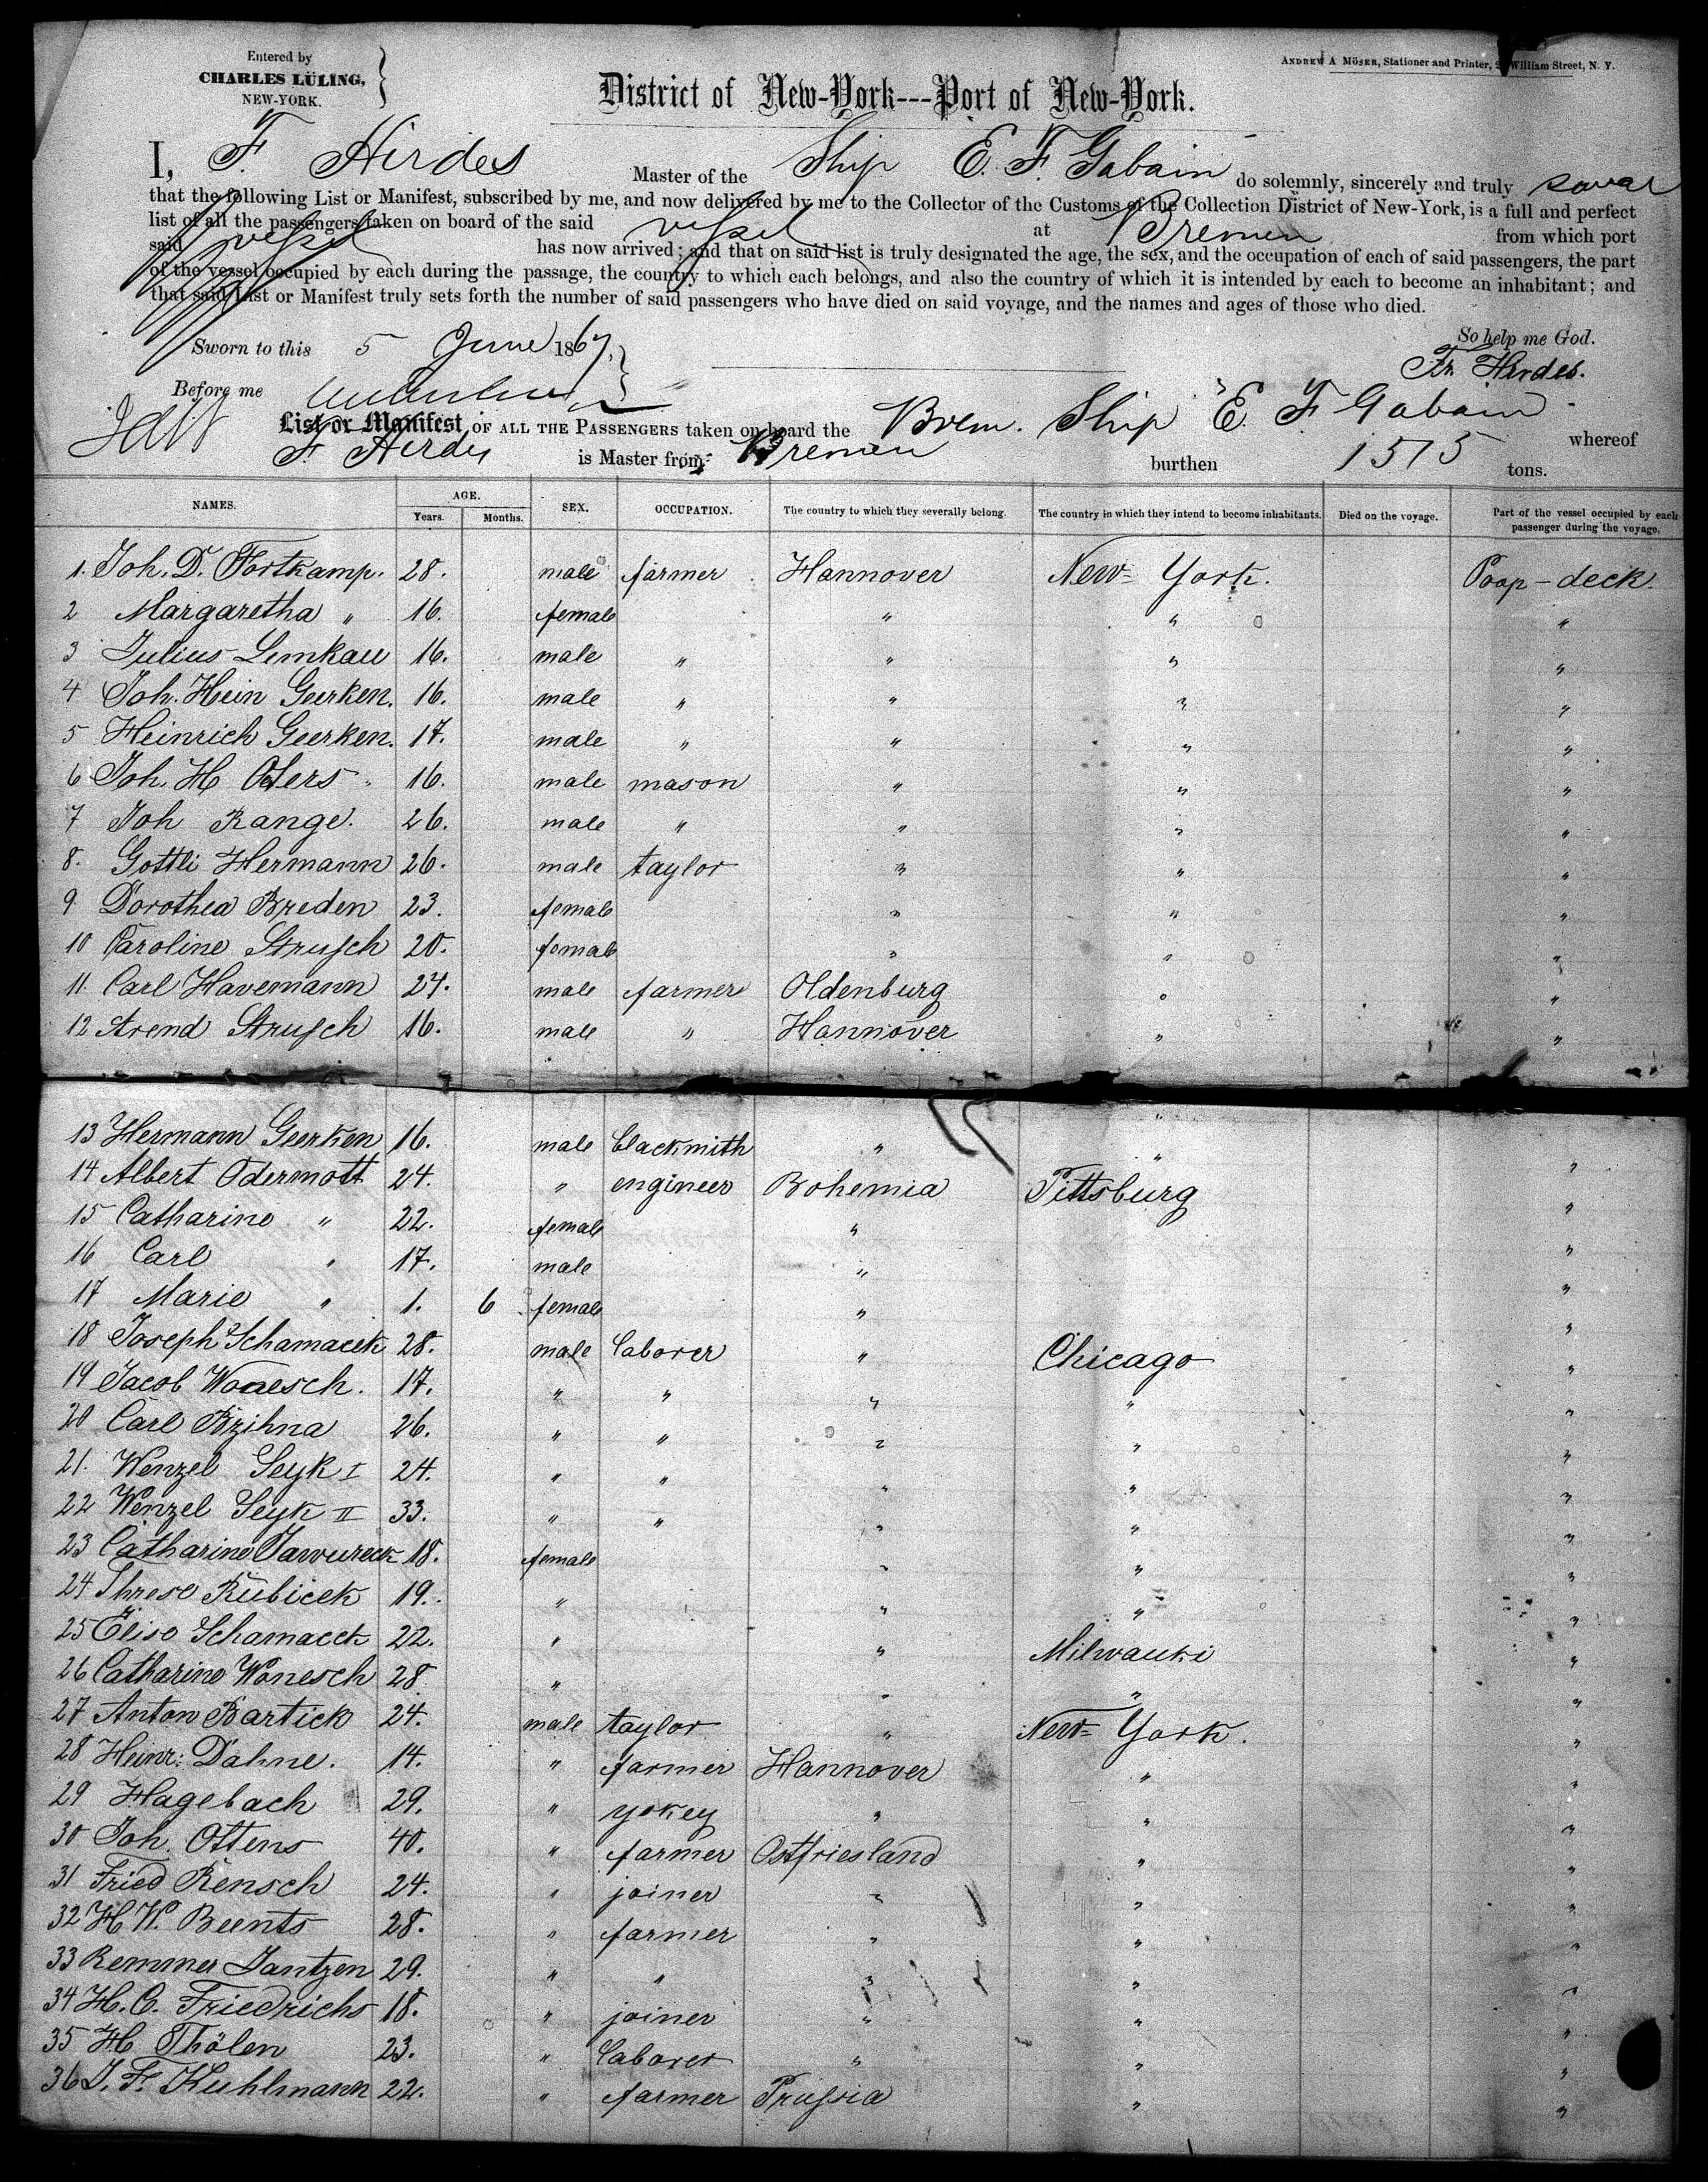 Entered by
CHARLES LÜLING,
NEW-YORK.
ANDREW A MÖSER, Stationer and Printer, William Street, N. Y.
District of New-York---Port of New-York.
I, F. Hirdes Master of the Ship E. F. Gabain do solemnly, sincerely and truly swear
that the following List or Manifest, subscribed by me, and now delivered by me to the Collector of the Customs of the Collection District of New-York, is a full and perfect
list of all the passengers taken on board of the said vessel at Bremen from which port
said vessel has now arrived; and that on said list is truly designated the age, the sex, and the occupation of each of said passengers, the part
of the vessel occupied by each during the passage, the country to which each belongs, and also the country of which it is intended by each to become an inhabitant; and
that said List or Manifest truly sets forth the number of said passengers who have died on said voyage, and the names and ages of those who died.
So help me God.
Sworn to this 5 June 1867.
Fr. Hirdes.
Before me
List or Manifest OF ALL THE PASSENGERS taken on board the Brem. Ship "E. F. Gabain" whereof
F. Hirdes is Master from Bremen burthen 1515 tons.
NAMES. AGE. Years. Months. SEX. OCCUPATION. The country to which they severally belong. The country in which they intend to become inhabitants. Died on the voyage. Part of the vessel occupied by each passenger during the voyage.
1. Joh. D. Fortkamp. 28. male farmer Hannover New-York. Poop-deck.
2 Margaretha " 16. female " " "
3 Julius Lemkau 16. male " " " "
4 Joh. Hein Geerken. 16. male " " " "
5 Heinrich Geerken. 17. male " " " "
6 Joh. H 16. male mason " " "
7 Joh Range. 26. male " " " "
8. Gottli Hermann 26. male taylor " " "
9 Dorothea Breden 23. female " " "
10 Caroline Strusch 20. female " " "
11. Carl Havemann 24. male farmer Oldenburg " "
12 Arend Strusch 16. male " Hannover " "
13 Hermann Geerken 16. male blackmith " " "
14 Albert Odermott 24. " engineer Bohemia Pittsburg "
15 Catharine " 22. female " "
16 Carl " 17. male " "
17 Marie " 1. 6 female " "
18 Joseph Schamacek 28. male laborer " Chicago "
19 Jacob Wonesch. 17. " " " " "
20 Carl Bzihna 26. " " " " "
21. Wenzel Seyk I 24. " " " " "
22 Wenzel Seyk II 33. " " " " "
23 Catharine Jawureck 18. female " " "
24 Threse Kubicek 19. " " " "
25 Elise Schamacek 22. " " Milwauki "
26 Catharine Wonesch 28 " " " "
27 Anton Bartick 24. male taylor " New-York. "
28 Heinr: Dahne. 14. " farmer Hannover " "
29 Hagebach 29. " yokey " " "
30 Joh. Ottens 40. " farmer Ostfriesland " "
31 Fried Rensch 24. " joiner " " "
32 H W. Beents 28. " farmer " " "
33 Remmer Jantzen 29. " " " " "
34 H. C. Friedrichs 18. " joiner " " "
35 H Thölen 23. " laborer " " "
36 J. F. Kuhlmann 22. " farmer Prussia " "